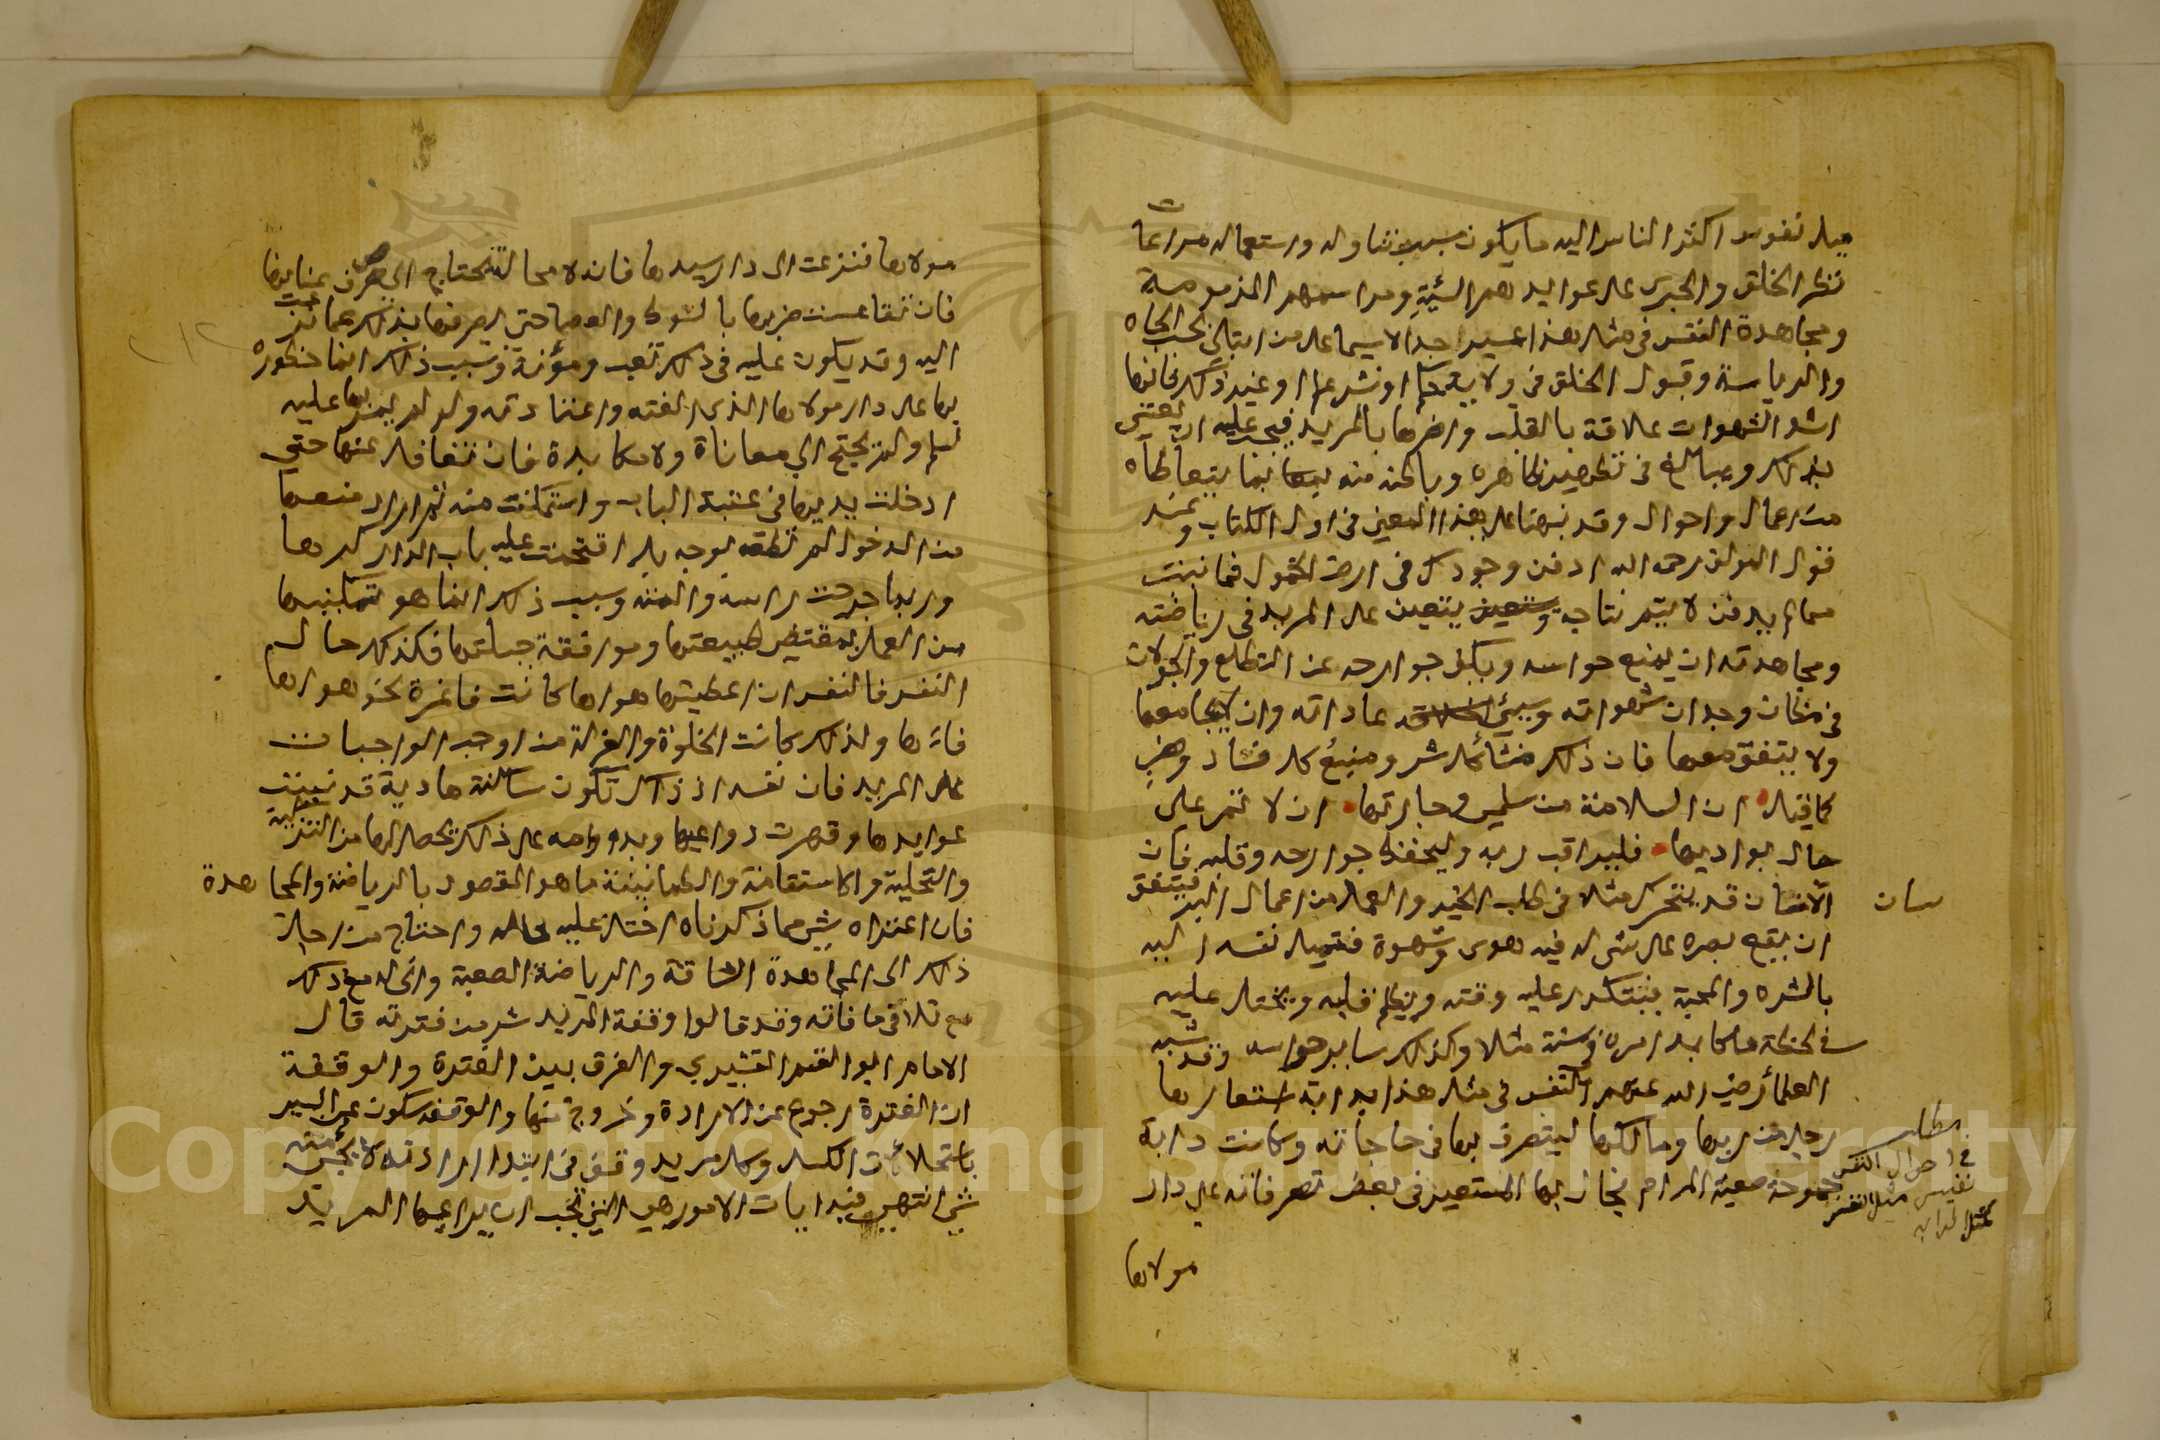 ميل نفوس اكثر الناس اليه ما يكون بسبب تناوله واستعماله مراعات
نظر الخلق والجري على عوايدهم السيئة ومراسمهم المذمومة
ومجاهدة النفس في مثل هذا عسير جدا لا سيما على من ابتلي بحب الجاه
والرياسة وقبول الخلق في ولاية حكم او نشر علم او غير ذلك فانها
اشد الشهوات علاقة بالقلب واضرها بالمريد فيجب عليه ان يعتني
بذلك ويبالغ في تطهير ظاهره وباطنه منه بما يتعاطاه
من اعمال واحوال وقد نبهنا على هذا المعنى في اول الكتاب وعند
قول المؤلف رحمه الله ادفن وجودك في ارض الخمول فما نبت
مما لم يدفن لا يتم نتاجه ويتعين على المريد في رياضته
ومجاهدته ان يمنع حواسه ويكف جوارحه عن التطلع والجولان
في مظان وجدان شهواته وسيئ عاداته وان لا يجامعها
ولا يتفق معها فان ذلك منشأ كل شر ومنبع كل فساد وهذ
كما قيل ان السلامة من سلمى وجارتها ان لا تمر على
حال بواديها فليراقب ربه وليحفظ جوارحه وقلبه فان
الانسان قد يتحرك مثلا في طلب الخير والعمل من اعمال البر فيتفق
سان
ان يقع بصره على شي له فيه هوى وشهوة فتميل نفسه اليه
بالشره والمحبة فيتكدر عليه وقته ويظلم قلبه ويختل عليه
في لحظة ما كابد امره في سنة مثلا وكذلك ساير حواسه وقد شبه
العلماء رضي الله عنهم النفس في مثل هذا بدابة استعارها
رجل من ربها ومالكها ليتصرف بها في حاجاته وكانت دابة
جموحة صعبة المرام فجال بها المستعير في بعض تصرفاته على دار
مطلب
في احوال النفس
نفيس مثل النفس
كمثل الدابه
مولاها
مولاها فنزعت الى دار سيدها فانه لا محالة يحتاج الى صرف عنانها
فان تقاعست ضربها بالسوط والعصا حتى يصرفها بذلك عما نزعت
اليه وقد يكون عليه في ذلك تعب ومؤنة وسبب ذلك انما خطوره
بها على دار مولاها الذي الفته واعتادته ولو لم يمر بها عليه
لسلم ولم يحتج الى معاناة ولا مكابدة فان تغافل عنها حتى
ادخلت يديها في عتبة الباب واستمكنت منه ثم اراد منعها
من الدخول لم تطعه بوجه بل اقتحمت عليه باب الدار كرها
وربما جرحت راسه والمته وسبب ذلك انما هو تمكينها
من العمل بمقتضى طبيعتها وموافقة جبلتها فكذلك حال
النفس فالنفس ان اعطيتها هواها كانت فاغرة نحو هواها
فاها ولذلك كانت الخلوة والعزلة من اوجب الواجبات
على المريد فان نفسه اذ ذاك تكون ساكنة هادية قد نسيت
عوايدها وقهرت دواعيها وبدوامه على ذلك يحصل لها من التزكية
والتحلية والاستقامة والطمانينة ما هو المقصود بالرياضة والمجاهدة
فان اعتراه شي مما ذكرناه اختل عليه حاله واحتاج من اجل
ذلك الى المجاهدة الشاقة والرياضة الصعبة وانى له مع ذلك
مع تلافي ما فاته وقد قالوا وقفة المريد شر من فترته قال
الامام ابو القسم القشيري والفرق بين الفترة والوقفة
ان الفترة رجوع عن الارادة وخروج منها والوقفة سكون عن السير
باستحلاء ت الكسل وكل مريد وقف في ابتدا ارادته لا يجيء منه
شي انتهى فبدايات الامور هي التي تجب ان يراعيها المريد